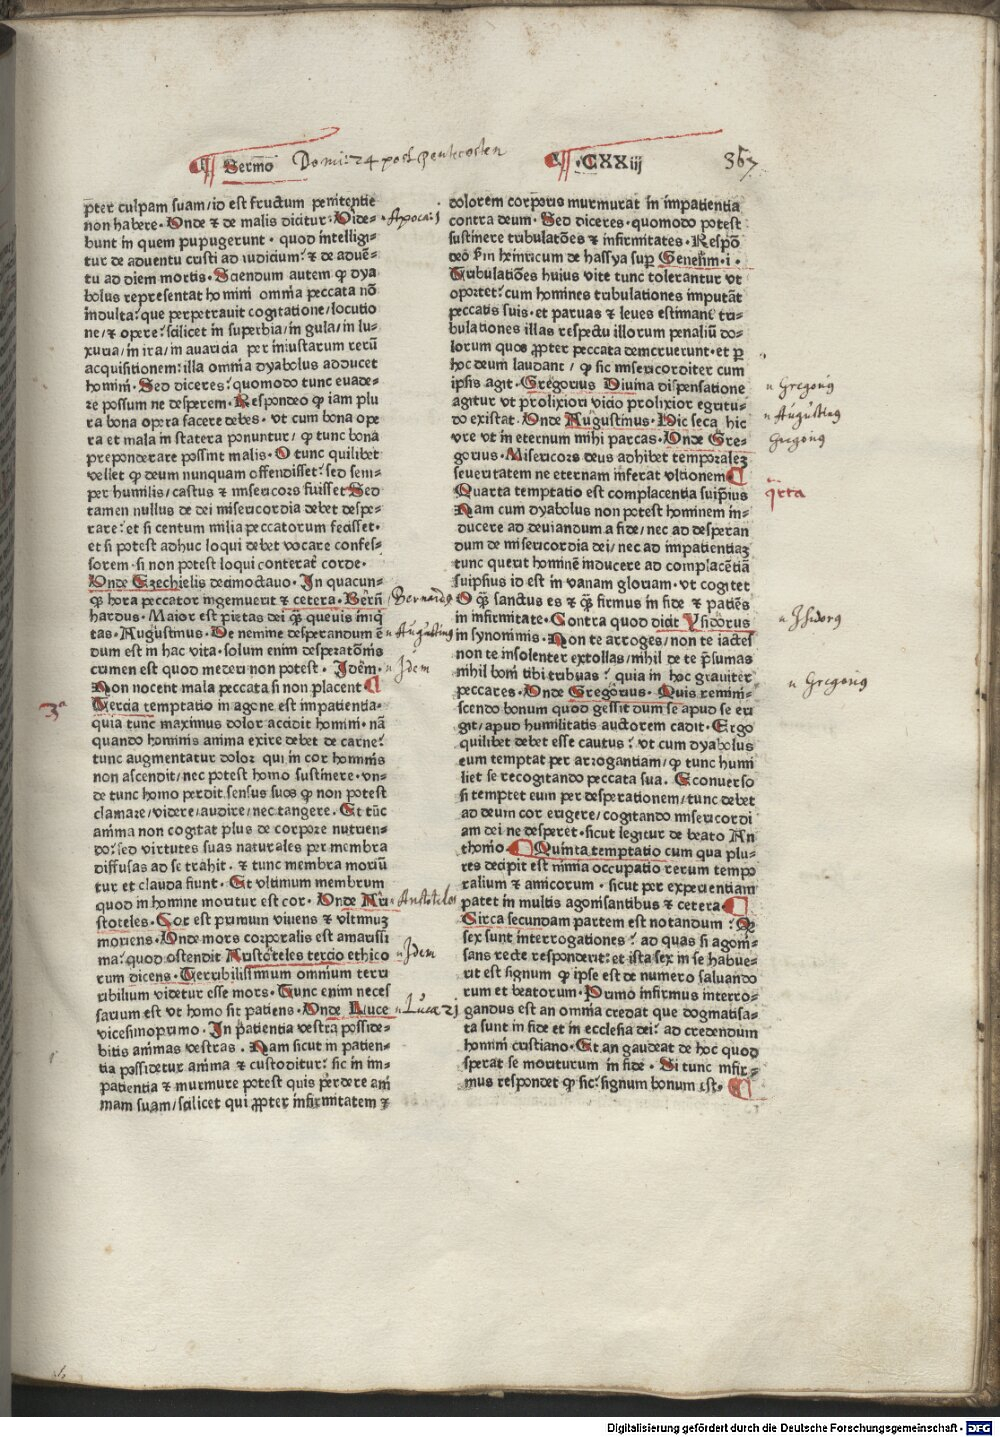 Sermo Domi: 24 post pentecosten
.CXXiij 367
pter culpam suam/id est fructum penitentie
non habere. Unde ⁊ de malis dicitur: Vide⸗
bunt in quem pupugerunt. quod intelligi⸗
tur de aduentu cristi ad iudicium: ⁊ de aduē⸗
tu ad diem mortis. Sciendum autem ꝙ dya
bolus representat homini omnia peccata nō
indulta: que perpetrauit cogitatione/locutio
ne/⁊ opere: scilicet in superbia/in gula/in lu⸗
xuria/in ira/in auaricia per iniustarum rerū
acquisitionem: illa omnia dyabolus adducet
homini. Sed diceres: quomodo tunc euade⸗
re possum ne desperem. Respondeo ꝙ iam plu
ra bona opera facere debes. vt cum bona ope
ra et mala in statera ponuntur/ ꝙ tunc bona
preponderare possint malis. O tunc quilibet
vellet ꝙ deum nunquam offendisset: sed sem⸗
per humilis/castus ⁊ misericors fuisset Sed
tamen nullus de dei misericordia debet despe⸗
rare: et si centum milia peccatorum fecisset.
et si potest adhuc loqui debet vocare confes⸗
sorem. si non potest loqui conterat̄ corde.
Unde Ezechielis decimoctauo. In quacun⸗
ꝙ hora peccator ingemuerit ⁊ cetera. Bern̄
hardus. Maior est pietas dei ꝙ̄ queuis iniq̄
tas. Augustinus. De nemine desperandum ē
dum est in hac vita. solum enim desperatōnis
crimen est quod mederi non potest. Idēm.
Non nocent mala peccata si non placent
Tercia temptatio in agone est impatientia.
quia tunc maximus dolor accidit homini. nā
quando hominis anima exire debet de carne:
tunc augmentatur dolor qui in cor hominis
non ascendit/nec potest homo sustinere. vn⸗
de tunc homo perdit sensus suos ꝙ non potest
clamare/videre/audire/nec tangere. Et tūc
anima non cogitat plus de corpore nutrien⸗
do: sed virtutes suas naturales per membra
diffusas ad se trahit. ⁊ tunc membra moriū
tur et clauda fiunt. Et vltimum membrum
quod in homine moritur est cor. Unde Ari
stoteles. Cor est primum viuens ⁊ vltimuꝫ
moriens. Unde mors corporalis est amarissi
ma: quod ostendit Aristoteles tercio ethico
rum dicens. Terribilissimum omnium terri
ribilium videtur esse mors. Tunc enim neces
sarium est vt homo sit patiens. Unde Luce
vicesimoprimo. In patientia vestra posside⸗
bitis animas vestras. Nam sicut in patien⸗
tia possidetur anima ⁊ custoditur: sic in im⸗
patientia ⁊ murmure potest quis perdere ani
mam suam/scilicet qui ꝓpter infirmitatem ⁊
Apoca: 1
Bernardꝰ
Augustinꝰ
Idem
3ᵃ
Aristotelꝭ
Idem
Luca 21
dolorem corporis murmurat in impatientia
contra deum. Sed diceres. quomodo potest
sustinere tribulatōes ⁊ infirmitates. Respō
deo ẜm heinricum de hassya sup̄ Genesim.i.
Tribulatiōes huius vite tunc tolerantur vt
oportet: cum homines tribulationes imputāt
peccatis suis. et paruas ⁊ leues estimant tri⸗
bulationes illas respectu illorum penaliū do⸗
lorum quos ꝓpter peccata demeruerunt. et ꝑ
hoc deum laudant/ ꝙ sic misericorditer cum
ipsis agit. Gregorius Diuina dispensatione
agitur vt prolixiori vicio prolixior egritu⸗
do existat. Unde Augustinus. Hic seca hic
vre vt in eternum mihi parcas. Unde Gre⸗
gorius. Misericors deus adhibet temporaleꝫ
seueritatem ne eternam inferat vltionem
Quarta temptatio est complacentia suiip̄ius
Nam cum dyabolus non potest hominem in⸗
ducere ad deuiandum a fide/nec ad desperan
dum de misericordia dei/nec ad impatientiaꝫ
tunc querit hominē inducere ad complacētiā
suiipsius id est in vanam gloriam. vt cogitet
O ꝙ̄ sanctus es ⁊ ꝙ̄ firmus in fide ⁊ patiēs
in infirmitate. Contra quod dicit Ysidorus
in synonimis. Non te arroges/non te iactes
non te insolenter extollas/nihil de te p̄sumas
nihil boni tibi tribuas: quia in hoc grauiter
peccares. Unde Gregorius. Quis remini⸗
scendo bonum quod gessit dum se apud se eri
git/apud humilitatis auctorem cadit. Ergo
quilibet debet esse cautus: vt cum dyabolus
eum temptat per arrogantiam/ꝙ tunc humi
liet se recogitando peccata sua. Econuerso
si temptet eum per desperationem/tunc debet
ad deum cor erigere/cogitando misericordi
am dei ne desperet. sicut legitur de beato An
thonio. Quinta temptatio cum qua plu⸗
res decipit est nimia occupatio rerum tempo
ralium ⁊ amicorum. sicut per experientiam
patet in multis agonisantibus ⁊ cetera.
Circa secundam partem est notandum: Q
sex sunt interrogationes: ad quas si agoni⸗
sans recte responderit: et ista sex in se habue⸗
rit est signum ꝙ ipse est de numero saluando
rum et beatorum. Primo infirmus interro⸗
gandus est an omnia credat que dogmatisa⸗
ta sunt in fide et in ecclesia dei: ad credendum
homini cristiano. Et an gaudeat de hoc quod
sperat se moriturum in fide. Si tunc infir⸗
mus respondet ꝙ sic: signum bonum est.
Gregoriꝰ
Augustinꝰ
Gregoriꝰ
qrta
Isidorꝰ
Gregoriꝰ
Digitalisierung gefördert durch die Deutsche Forschungsgemeinschaft - DFG